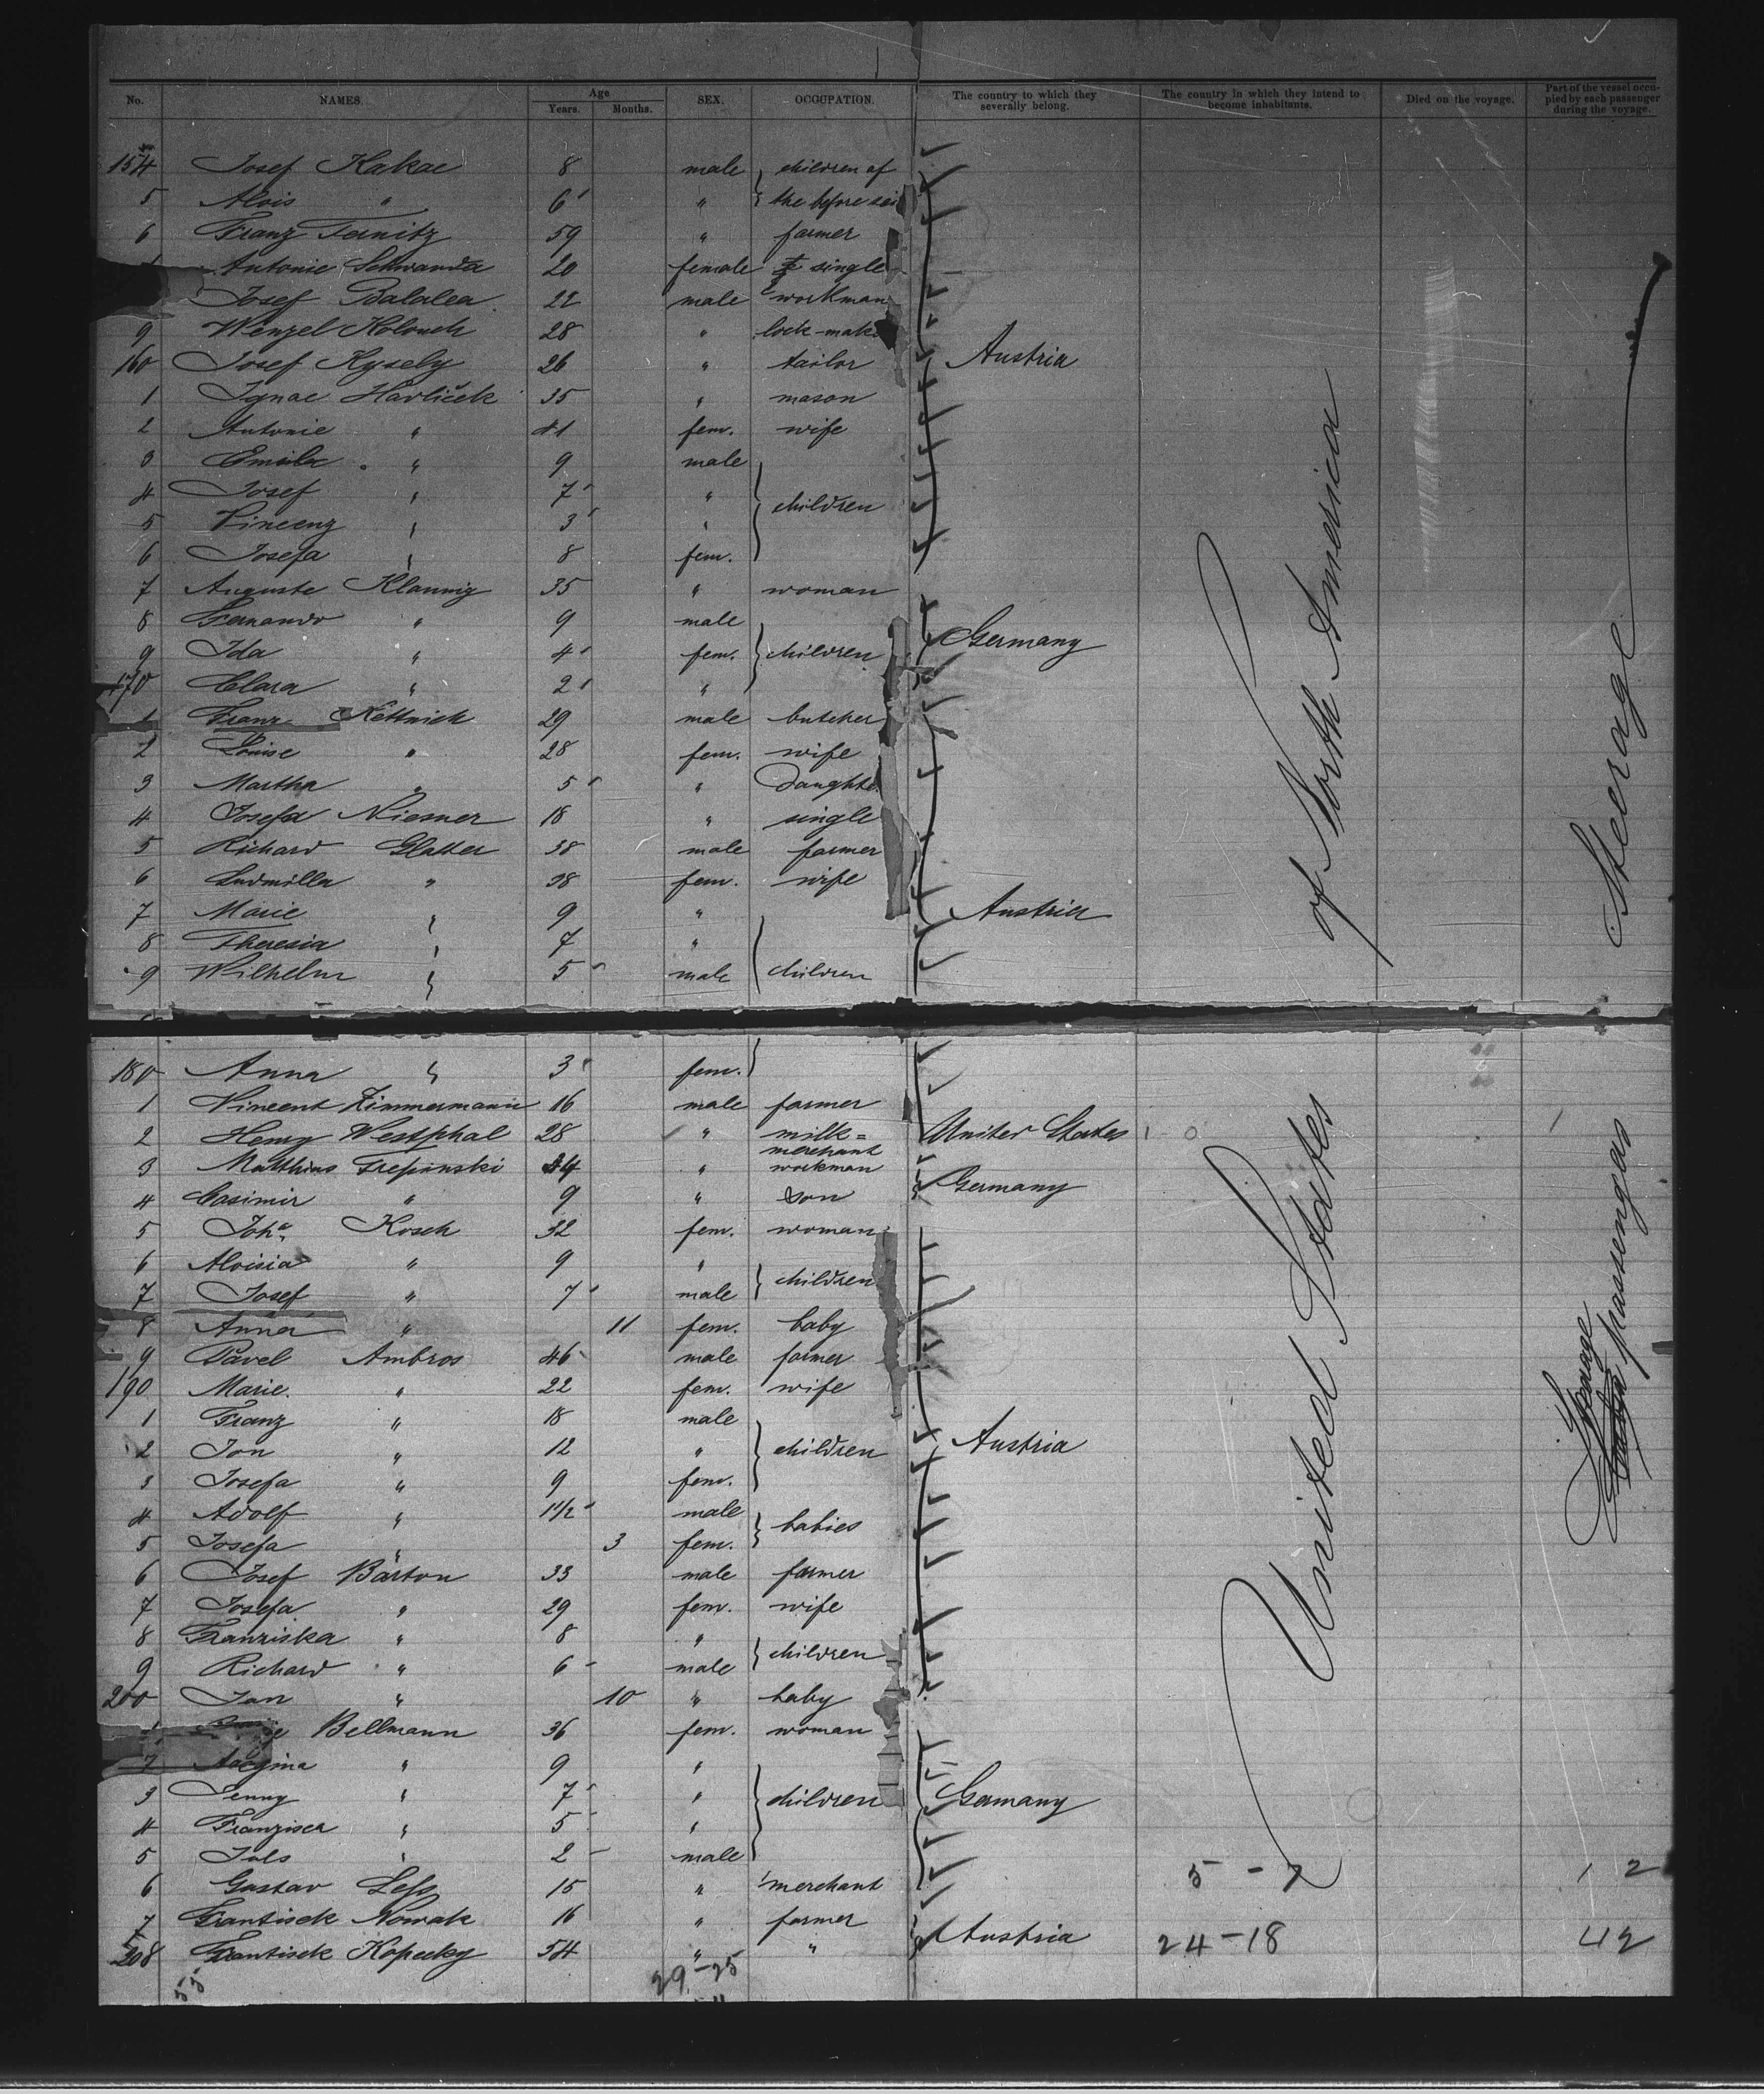 No. NAMES. Age Years. Months. SEX. OCCUPATION. The country to which they severally belong. The country in which they intend to become inhabitants. Died on the voyage. Part of the vessel occupied by each passenger during the voyage.
154 Josef Kakac 8 male children of
5 Alois " 6 " the before
6 Franz Ternitz 59 " farmer
Antonie Schwanda 20 female single
Josef Balalea 22 male workman
9 Wenzel Kolouch 28 " lock-mak
160 Josef Kysely 26 " tailor Austria
1 Ignac Havliček 35 " mason
2 Antonie " 41 fem. wife
3 Emila " 9 male
4 Josef " 7 " children
5 Vincenz " 3 "
6 Josefa " 8 fem.
7 Auguste Klannig 35 " woman
8 Fernando " 9 male
9 Ida " 4 fem. children Germany
170 Clara " 2 "
1 Franz Kettnich 29 male butcher
2 Louise " 28 fem. wife
3 Martha " 5 " Daughte
4 Josefa Niesner 18 " single
5 Richard Glatter 38 male farmer
6 Ludmilla " 38 fem. wife
7 Marie " 9 " Austria
8 Theresia " 7 "
9 Wilhelm " 5 male children
180 Anna " 3 fem.
1 Vincent Zimmermann 16 male farmer
2 Henry Westphal 28 " milk= merchant United States
3 Matthias Trepinski 44 " workman
4 Casimir " 9 " son Germany
5 Joha. Kosch 32 fem. woman
6 Aloisia " 9 "
7 Josef " 7 male children
8 Anna " 11 fem. baby
9 Pavel Ambros 46 male farmer
190 Marie " 22 fem. wife
1 Franz " 18 male
2 Jon " 12 " children Austria
3 Josefa " 9 fem.
4 Adolf " 1 1/2 male
5 Josefa " 3 fem. babies
6 Josef Barton 33 male farmer
7 Josefa " 29 fem. wife
8 Franziska " 8 "
9 Richard " 6 male children
200 Jan " 10 " baby
Bellmann 36 fem. woman
" 9 "
3 Jenny " 7 " children Germany
4 Franzisca " 5 "
5 Juls " 2 male
6 Gustav Less 15 " merchant 5 - 7 12
7 Frantisek Nowak 16 " farmer
208 Frantisek Kopecky 54 " " Austria 24-18 42
55 29-25
United States of North America
Steerage
Steerage passengers